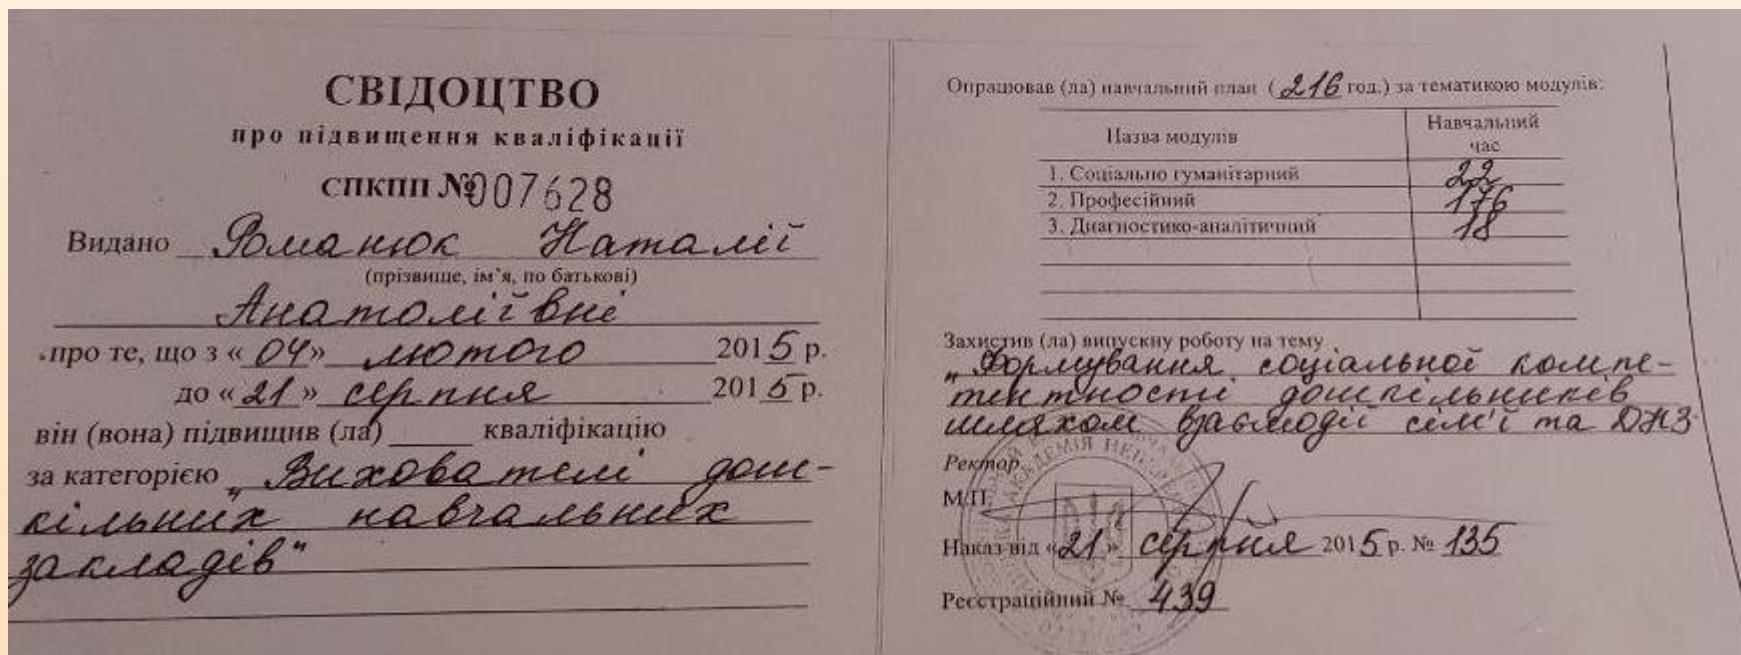 СВІДОЦТВО
про підвищення кваліфікації
СПКПП №007628
Видано Романюк Наталії
(прізвище, ім'я, по батькові)
Анатоліївні
про те, що з «04» лютого 2015 р.
до «21» серпня 2015 р.
він (вона) підвищив (ла) ____ кваліфікацію
за категорією „Вихователі дош-
кільних навчальних
закладів"
Опрацював (ла) навчальний план (216 год.) за тематикою модулів:
Назва модулів Навчальний час
1. Соціально гуманітарний 22
2. Професійний 176
3. Діагностико-аналітичний 18
Захистив (ла) випускну роботу на тему
„Формування соціальної компе-
тентності дошкільників
шляхом взаємодії сім'ї та ДНЗ
Ректор
М.П.
Наказ від «21» серпня 2015 р. № 135
Реєстраційний № 439